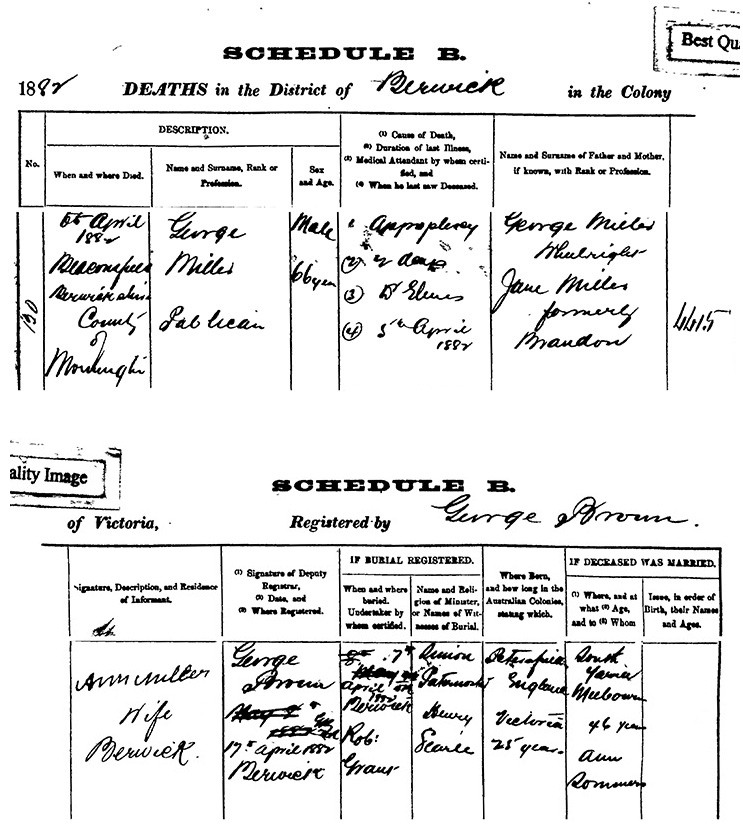 Best Qua
SCHEDULE B.
1882 DEATHS in the District of Berwick in the Colony
No.
DESCRIPTION.
When and where Died.
Name and Surname, Rank or
Profession.
Sex
and Age.
(1) Cause of Death,
(2) Duration of last Illness,
(3) Medical Attendant by whom certi-
fied, and
(4) When he last saw Deceased.
Name and Surname of Father and Mother,
if known, with Rank or Profession.
130
April
1882
Beaconsfield
County
of
George
Miller
Publican
Male
66 year
1
(2) 2 days
(3) Dr Elmes
(4) 5th April
1882
George Miller
Jane Miller
formerly
Brandon
ality Image
SCHEDULE B.
of Victoria, Registered by George Brown.
Signature, Description, and Residence
of Informant.
(1) Signature of Deputy
Registrar,
(2) Date, and
(3) Where Registered.
IF BURIAL REGISTERED.
When and where
buried.
Undertaker by
whom certified.
Name and Reli-
gion of Minister,
or Names of Wit-
nesses of Burial.
Where Born,
and how long in the
Australian Colonies,
stating which.
IF DECEASED WAS MARRIED.
(1) Where, and at
what (2) Age,
and to (3) Whom
Issue, in order of
Birth, their Names
and Ages.
Ann Miller
Wife
Berwick.
George
Brown
17th April 1882
Berwick
April
1882
Berwick
Rob:
Grant
Paternoster
Henry
Searle
Petersfield
England
Victoria
25 year.
South
Yarra
Melbourn
46 year
Ann
Sommers